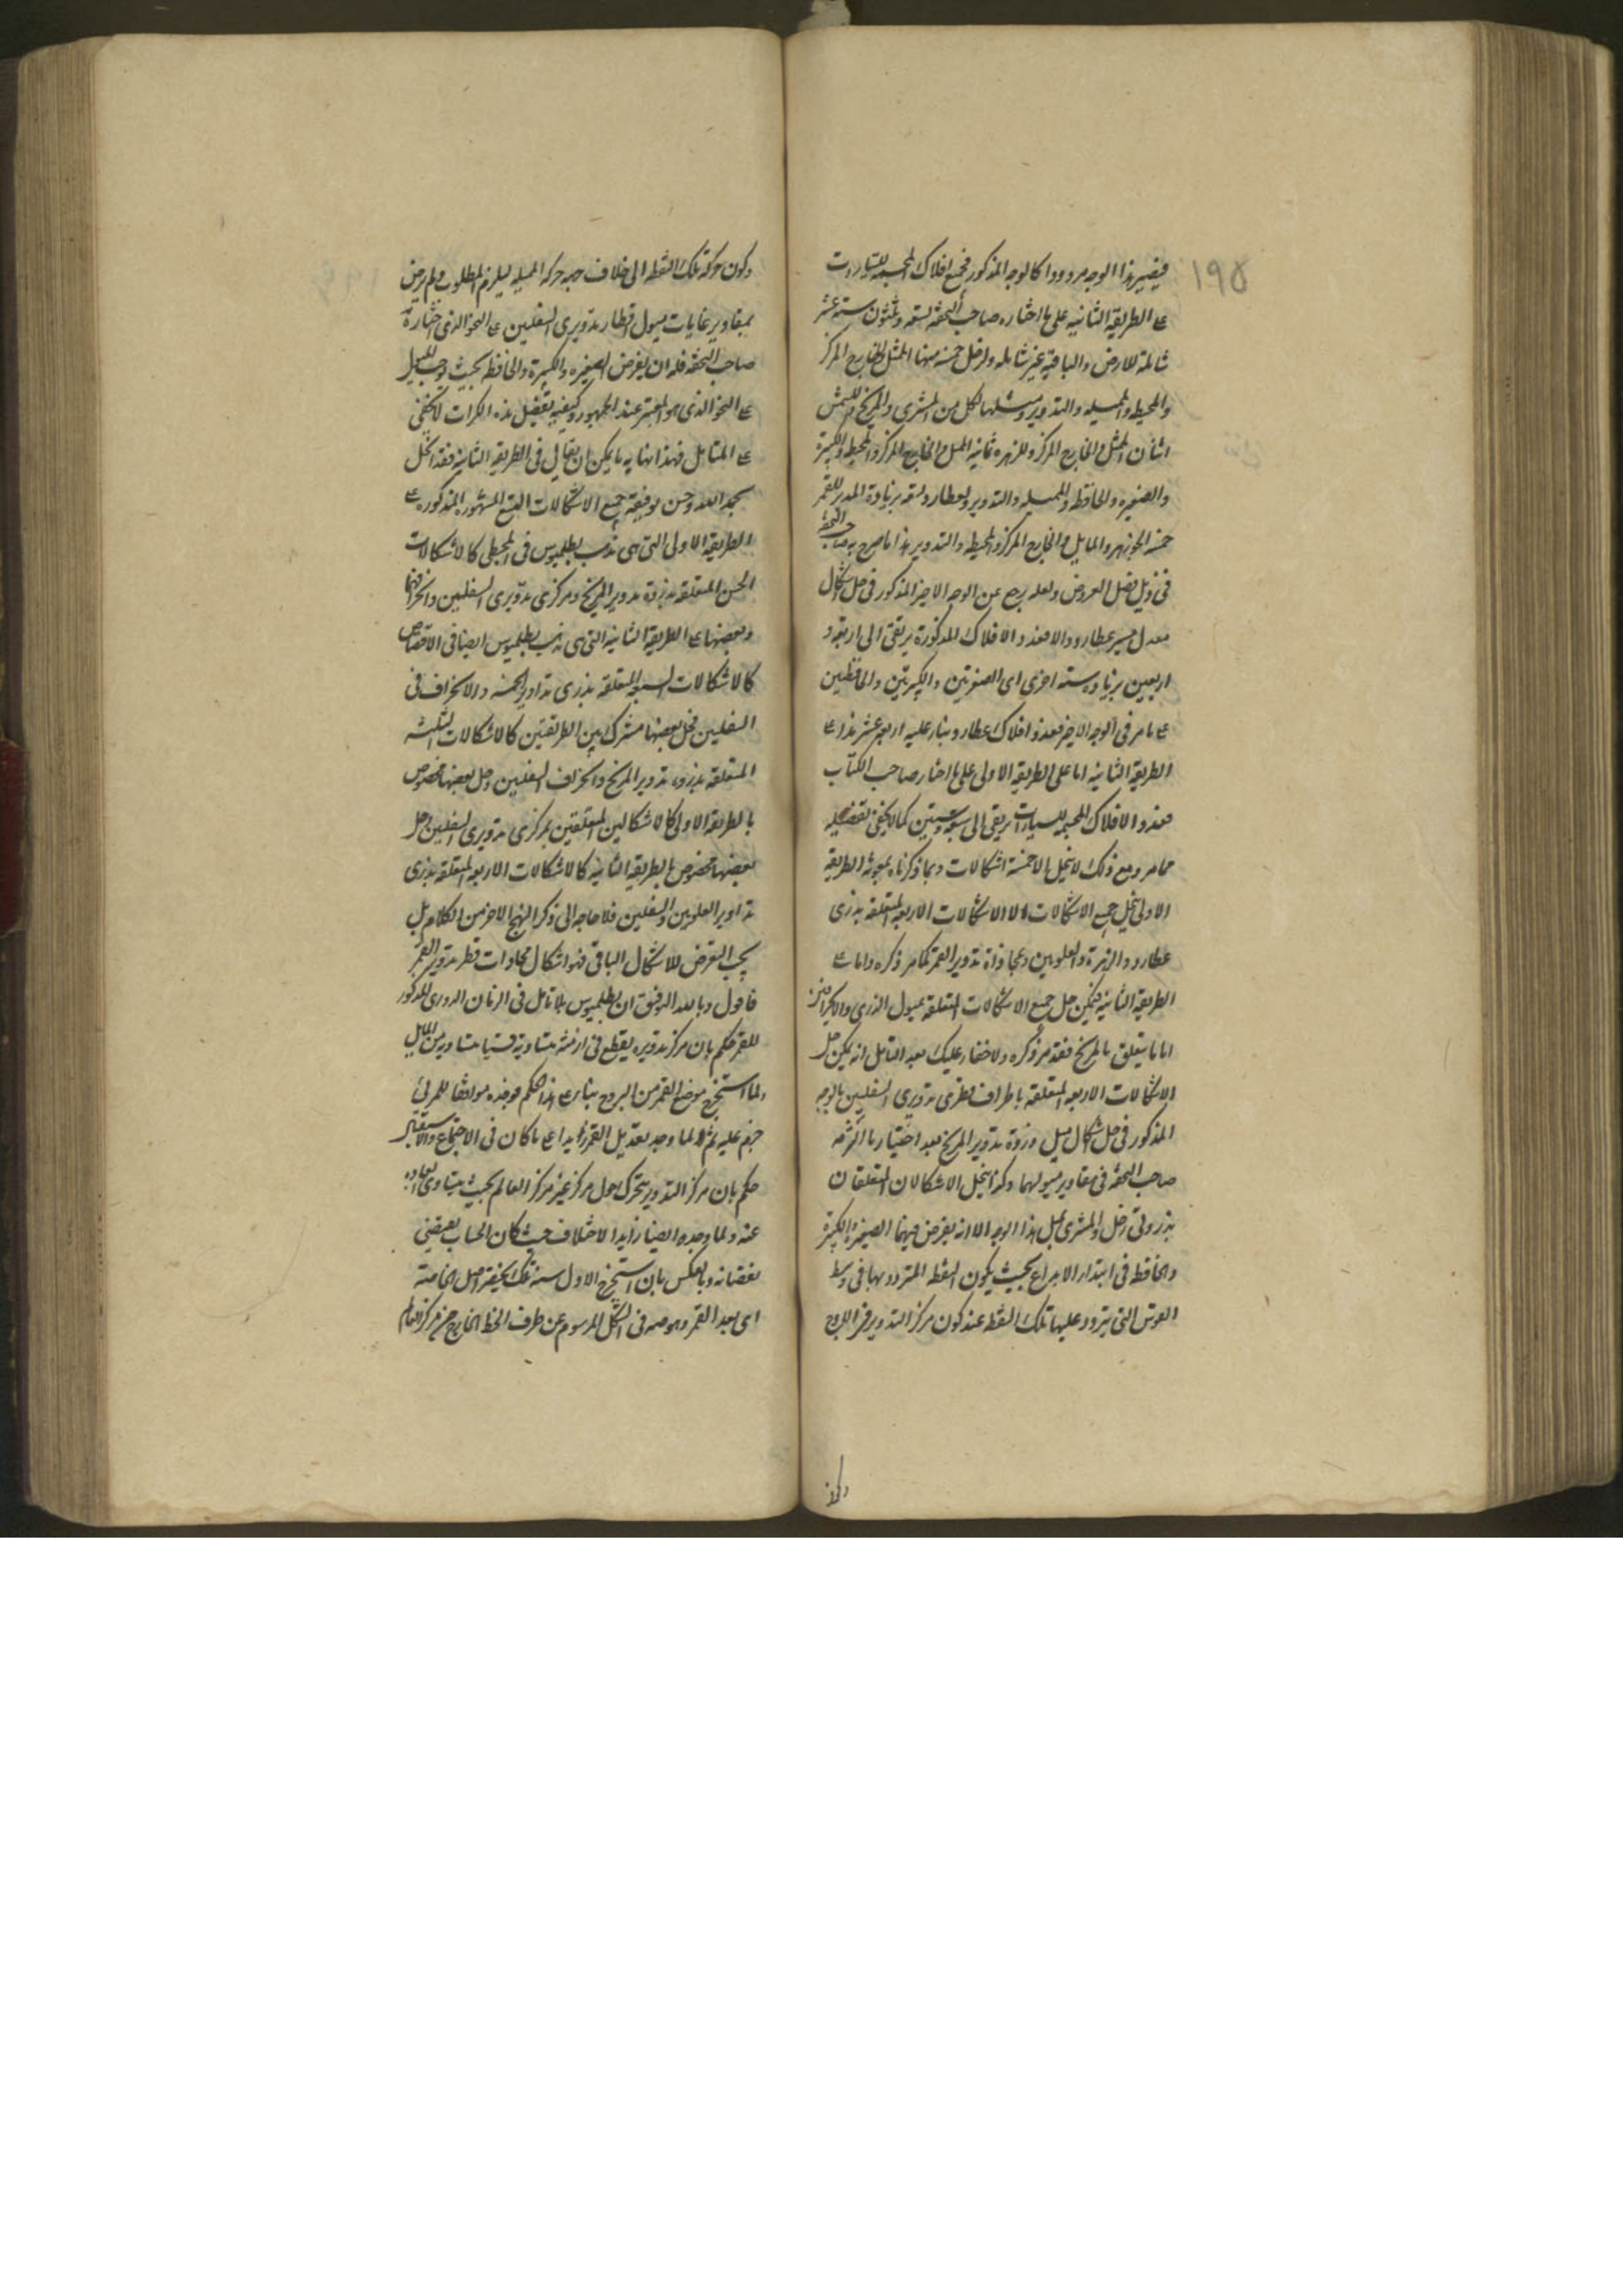 ١٩٥
فيصير هذا الوجه مردودا كالوجه المذكور فجميع افلاك المجسمة للسيارات
على الطريقة الثانية على ما اختاره صاحب التحفة تسعة وثلثون ستة عشر
شاملة للارض والباقية غير شاملة ولزحل خمسة منها الممثل والخارج المركز
والمحيطة والمميلة والتدوير ومثلها لكل من المشترى والمريخ وللشمس
اثنان الممثل والخارج المركز وللزهرة ثمانية الممثل والخارج المركز والمحيطة والكبيرة
والصغيرة والحافظة والمميلة والتدوير ولعطارد تسعة بزيادة المدير للقمر
خمسة الجوزهر والمايل والخارج المركز والمحيطة والتدوير هذا ما صرح به صاحب التحفة
فى ذيل فصل العروض ولعله رجع عن الوجه الاخير المذكور فى حل اشكال
معدل مسير عطارد والا فعدد الافلاك المذكورة يرتقى الى اربعة و
اربعين بزيادة ستة اخرى اى الصغيرتين والكبيرتين والحافظتين
على ما مر فى الوجه الاخير فعدد افلاك عطارد بناء عليه اربعة عشر هذا على
الطريقة الثانية اما على الطريقة الاولى على ما اختار صاحب الكتاب
فعدد الافلاك المجسمة للسيارات يرتقى الى سبعة وستين كما لا يخفى تفصيله
مما مر ومع ذلك لا ينحل الا خمسة اشكالات وبما ذكرناه بمعونة الطريقة
الاولى ينحل جميع الاشكالات الا الاشكالات الاربعة المتعلقة بذرى
عطارد والزهرة والعلويين ومحاذاة تدوير القمر كما مر ذكره واما على
الطريقة الثانية فيمكن حل جميع الاشكالات المتعلقة بميول الذرى والانحراف
اما ما يتعلق بالمريخ فقد مر ذكره ولا خفاء عليك بعد التامل انه يمكن حل
الاشكالات الاربعة المتعلقة باطراف قطرى تدويرى السفليين بالوجه
المذكور فى حل اشكال ميل ذروة تدوير المريخ بعد اختيار ما اكثره
صاحب التحفة فى مقادير ميولهما وكذا ينحل الاشكالان المتعلقان
بذروتى زحل والمشترى بمثل هذا الوجه الا انه يفرض فيهما الصغيرة والكبيرة
والحافظة فى ابتداء الابداع بحيث يكون النقطة المتردد بها فى وسط
القوس التى يتردد عليها تلك النقطة عند كون مركز التدوير فى
وكون
وكون حركة تلك النقطة الى خلاف جهة حركة المميلة ليلزم المطلوب ولم يرض
بمقادير غايات ميول اقطار تدويرى السفليين على النحو الذى اختاره
صاحب التحفة فله ان يفرض الصغيرة والكبيرة والحافظة بحيث يوجب الميل
على النحو الذى هو المعتبر عند الجمهور وكيفية تفضيل هذه الكرات لا يخفى
على المتامل فهذا نهاية ما يمكن ان يقال فى الطريقة الثانية فقد انحل
بحمد الله وحسن توفيقه جميع الاشكالات التسع المشهورة المذكورة على
الطريقة الاولى التى هى مذهب بطلميوس فى المجسطى كالاشكالات
الخمس المتعلقة بذروة تدوير المريخ ومركزى تدويرى السفليين وانحرافهما
وبعضها على الطريقة الثانية التى هى مذهب بطلميوس ايضا فى الاقتصاص
كالاشكالات السبعة المتعلقة بذرى تداوير الخمسة والانحراف فى
السفليين فحل بعضها مشترك بين الطريقتين كالاشكالات الثلثة
المتعلقة بذروة تدوير المريخ وانحراف السفليين وحل بعضها مخصوص
بالطريقة الاولى كالاشكالين المتعلقين بمركزى تدويرى السفليين وحل
بعضها مخصوص بالطريقة الثانية كالاشكالات الاربعة المتعلقة بذرى
تداوير العلويين والسفليين فلا حاجة الى ذكر النهج الاخر من الكلام بل
يجب التعرض للاشكال الباقى فهو اشكال محاذات قطر تدوير القمر
فاقول وبالله التوفيق ان بطلميوس لما تامل فى الزمان الدورى المذكور
للقمر حكم بان مركز تدويره يقطع فى ازمنة متساوية قسيا متساوية من المايل
ولما استخرج موضع القمر من البروج بناء على هذا الحكم فوجده موافقا للمرئى
جزم عليه ثم لما وجد تعديل القمر زايدا على ما كان فى الاجتماع والاستقبال
حكم بان مركز التدوير يتحرك حول مركز غير مركز العالم بحيث يتساوى ابعاده
عنه ولما وجده ايضا زايد الاختلاف حيث كان الحساب يقتضى
نقصانه وبالعكس بان استخرج الاول سنة تلك بحقيقة اصل الخاصة
اى بعد القمر وهو صه فى الشكل المرسوم عن طرف الخط الخارج من مركز العالم